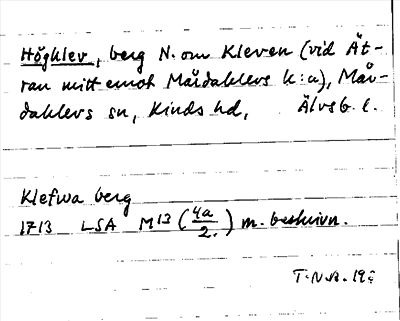 Högklev, berg N. om Kleven (vid Ät-
ran mitt emot Mårdaklevs k:a), Mår-
daklevs sn, Kinds hd, Älvsb. l.
Klefwa berg
1713 LSA M13 (4a/2.) m. beskrivn.